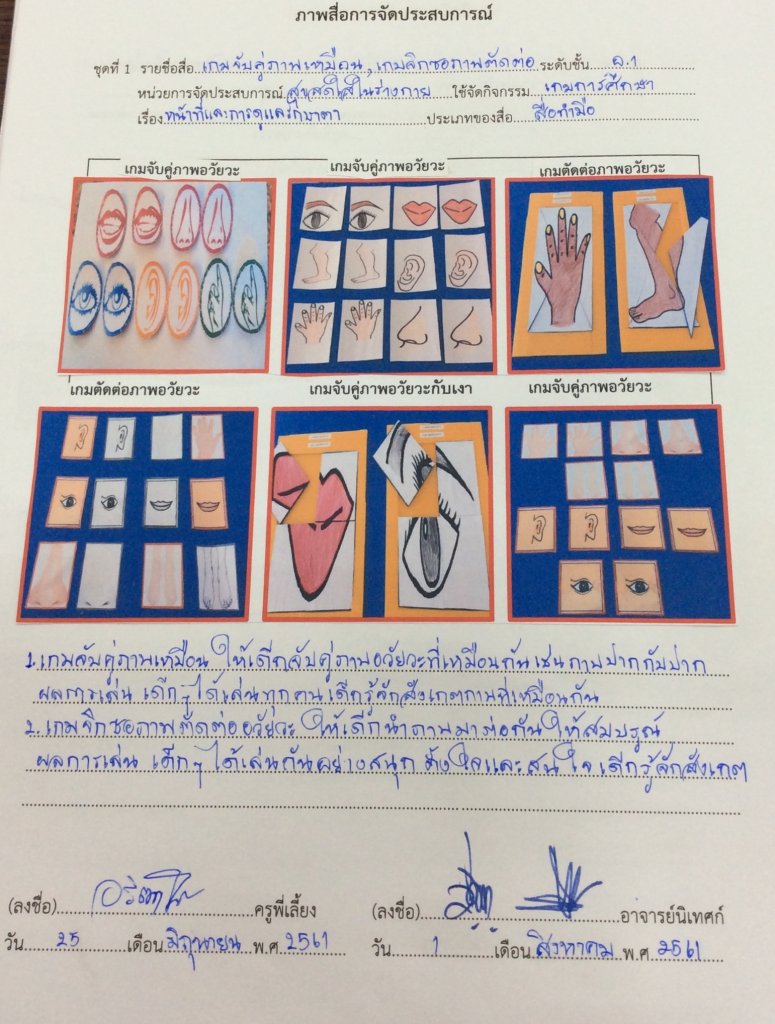 ภาพสื่อการจัดประสบการณ์
ชุดที่ 1 รายชื่อสื่อ เกมจับคู่ภาพเหมือน, เกมจิกซอภาพตัดต่อ ระดับชั้น อ.1
หน่วยการจัดประสบการณ์ สุขสดใสในร่างกาย ใช้จัดกิจกรรม เกมการศึกษา
เรื่อง หน้าที่และการดูแลรักษาตา ประเภทของสื่อ สื่อทำมือ
เกมจับคู่ภาพอวัยวะ เกมจับคู่ภาพอวัยวะ เกมตัดต่อภาพอวัยวะ
เกมตัดต่อภาพอวัยวะ เกมจับคู่ภาพอวัยวะกับเงา เกมจับคู่ภาพอวัยวะ
1. เกมจับคู่ภาพเหมือน ให้เด็กจับคู่ภาพอวัยวะที่เหมือนกัน เช่น ภาพปากกับปาก
ผลการเล่น เด็กๆ ได้เล่นทุกคน เด็กรู้จักสังเกตภาพที่เหมือนกัน
2. เกมจิกซอภาพตัดต่ออวัยวะ ให้เด็กนำภาพมาต่อกันให้สมบรูณ์
ผลการเล่น เด็กๆ ได้เล่นกันอย่างสนุก ตั้งใจและสนใจ เด็กรู้จักสังเกต
(ลงชื่อ) ครูพี่เลี้ยง (ลงชื่อ) อาจารย์นิเทศก์
วัน 25 เดือน มิถุนายน พ.ศ 2561 วัน 1 เดือน สิงหาคม พ.ศ 2561